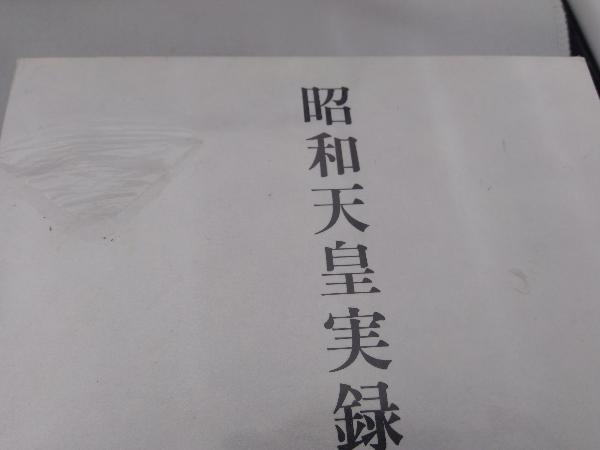 昭和天皇実録